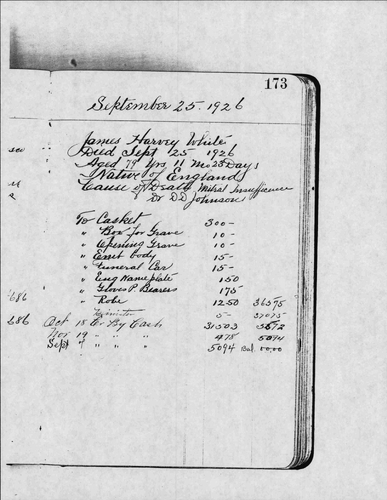 173
September 25. 1926
James Harvey White
Died Sept 25 1926
Aged 79 Yrs 11 Mo 23 Days
Native of England
Cause of Death Mitral Insufficience
Dr D.D. Johnson
To Casket 300 -
" Box for Grave 10 -
" Opening Grave 10 -
" Emt body 15 -
" Funeral Car 15 -
" Eng Nameplate 1 50
" Gloves P. Bearers 1 75
686 " Robe 12 50 365 75
Minister 5 - 370 75
686 Oct 18 Cr By Cash 315 03 55 72
Nov 19 " " " 4 78 50 94
Sept 7 " " " 50 94 Bal. 00.00